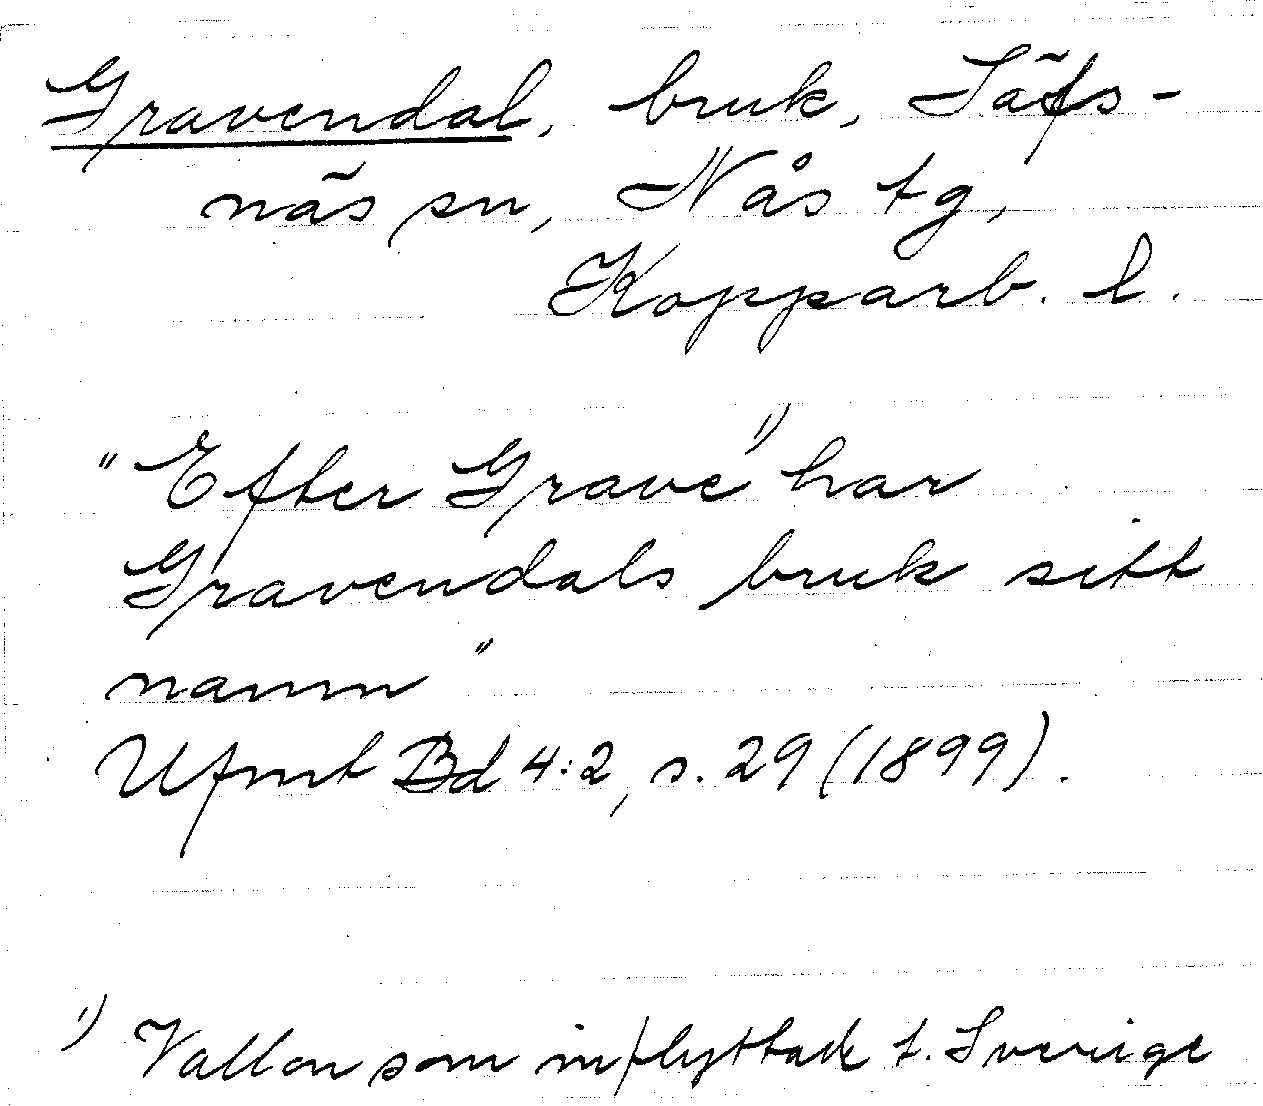 Gravendal, bruk, Säfs-
näs sn, Nås tg,
Kopparb. l.
"Efter Grave¹⁾ har
Gravendals bruk sitt
namn"
Ufmt Bd 4:2, s. 29 (1899).
¹⁾ Vallon som inflyttade t. Sverige